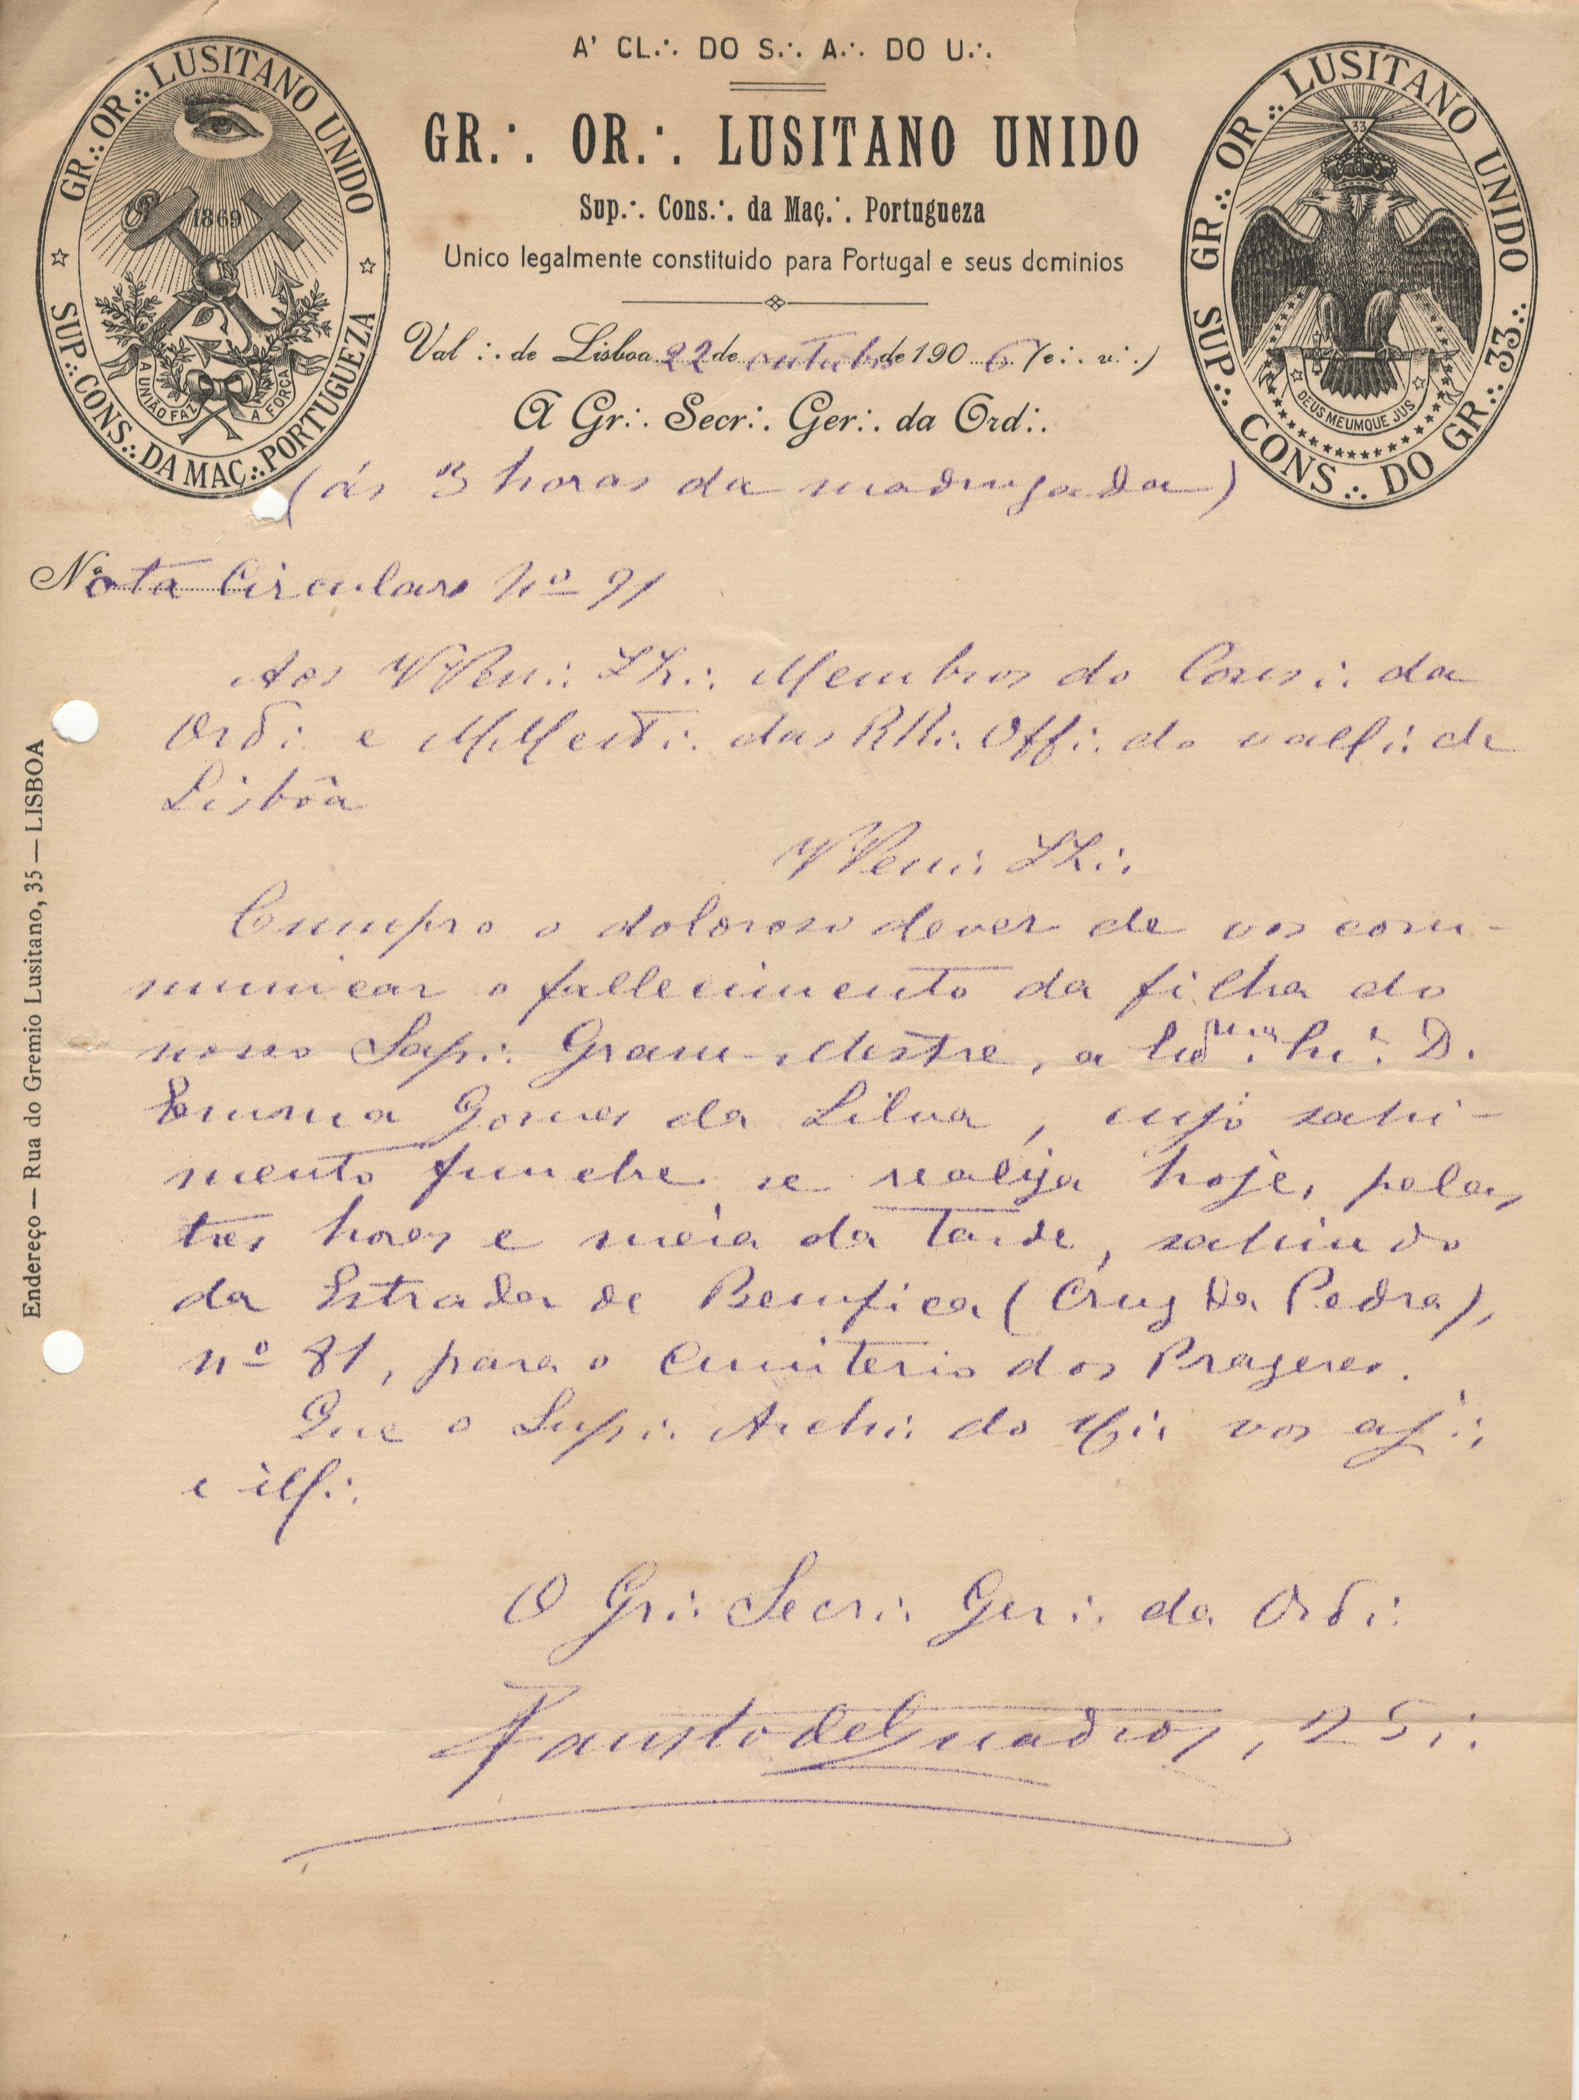 A' CL∴ DO S∴ A∴ DO U∴
GR∴ OR∴ LUSITANO UNIDO
Sup∴ Cons∴ da Maç∴ Portugueza
Unico legalmente constituido para Portugal e seus dominios
GR∴ OR∴ LUSITANO UNIDO
SUP∴ CONS∴ DA MAÇ∴ PORTUGUEZA
1869
A UNIÃO FAZ A FORÇA
SUP∴ GR∴ OR∴ LUSITANO UNIDO
SUP∴ CONS∴ DO GR∴ 33∴
33
DEUS MEUMQUE JUS
Val∴ de Lisboa 22 de outubro de 190 6 (e∴ v∴)
A Gr∴ Secr∴ Ger∴ da Ord∴
(ás 3 horas da madrugada)
Nota Circular nº 91
Aos VVen∴ IIr∴ Membros do Cons∴ da
Ord∴ e MMest∴ das RR∴ Off∴ do vall∴ de
Lisbôa
VVen∴ IIr∴
Cumpro o doloroso dever de vos com-
municar o fallecimento da filha do
nosso Sap∴ Gram-Mestre, a D.
Emma Gomes da Silva, cujo sahi-
mento funebre se realiza hoje, pelas
tres horas e meia da tarde, sahindo
da Estrada de Bemfica (Cruz da Pedra),
nº 81, para o Cemiterio dos Prazeres.
Que o Sup∴ Arch∴ do U∴ vos aj∴
e ill∴
O Gr∴ Secr∴ Ger∴ da Ord∴
Fausto de Quadros, 25∴
Endereço — Rua do Gremio Lusitano, 35 — LISBOA